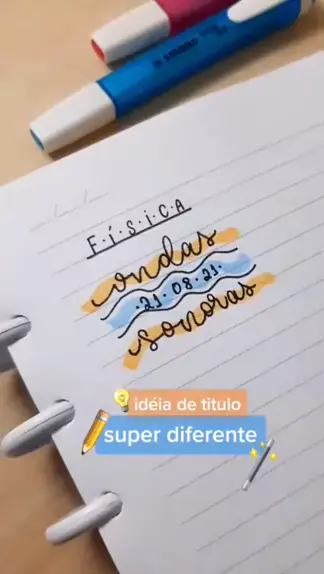 F·í·S·i·C·A
ondas
·21·08·21·
sonoras
idéia de titulo
super diferente